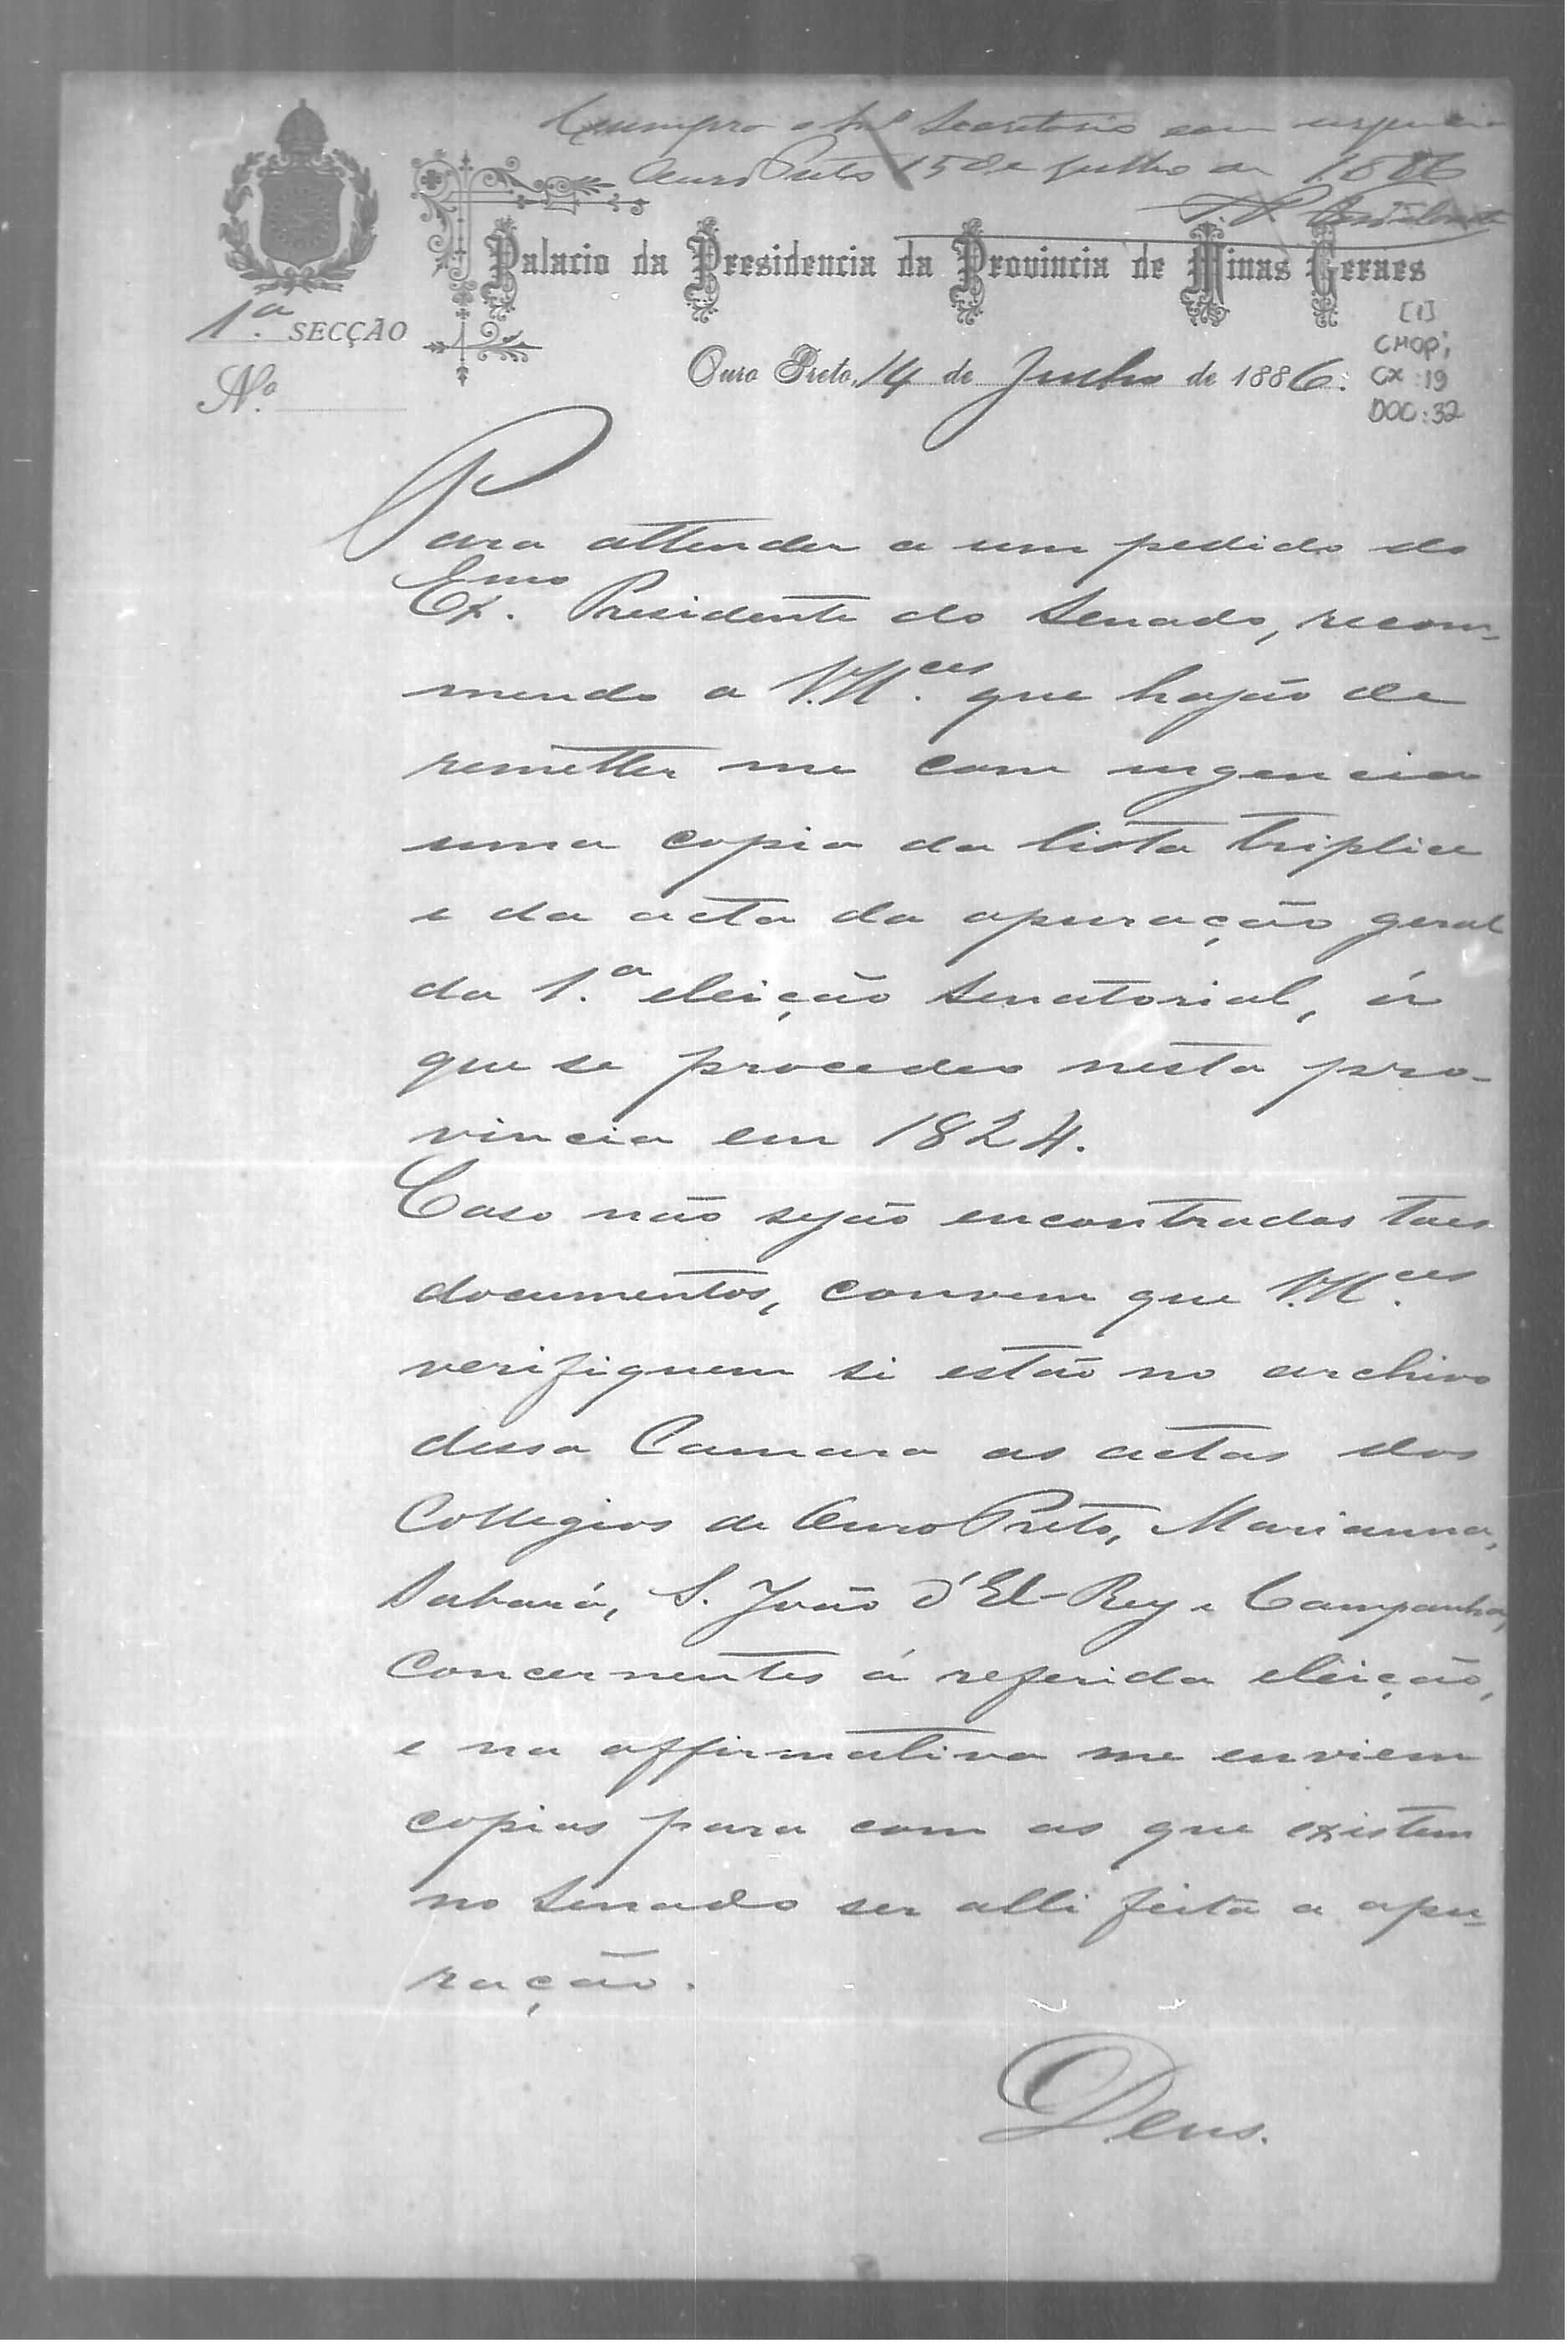 Cumpra o Snr Secretario com urgencia
Ouro Preto 15 de Julho de 1886
Palacio da Presidencia da Provincia de Minas Geraes
1.ª SECÇÃO
[1]
CMOP;
CX: 19
DOC: 32
Ouro Preto, 14 de Julho de 1886.
N.º
Para attender a um pedido do
Ex.mo Presidente do Senado, recom-
mendo a V.M.ces que hajão de
remetter me com urgencia
uma copia da lista triplice
e da acta da apuração geral
da 1.ª eleição senatorial, á
que se procedeo nesta pro-
vincia em 1824.
Caso não sejão encontrados taes
documentos, convem que V.M.ces
verifiquem si estão no archivo
dessa Camara as actas dos
Collegios de Ouro Preto, Marianna,
Sabará, S. João d'El-Rey e Campanha,
concernentes á referida eleição,
e na affirmativa me enviem
copias para com as que existem
no Senado ser alli feita a apu-
ração.
Deus.